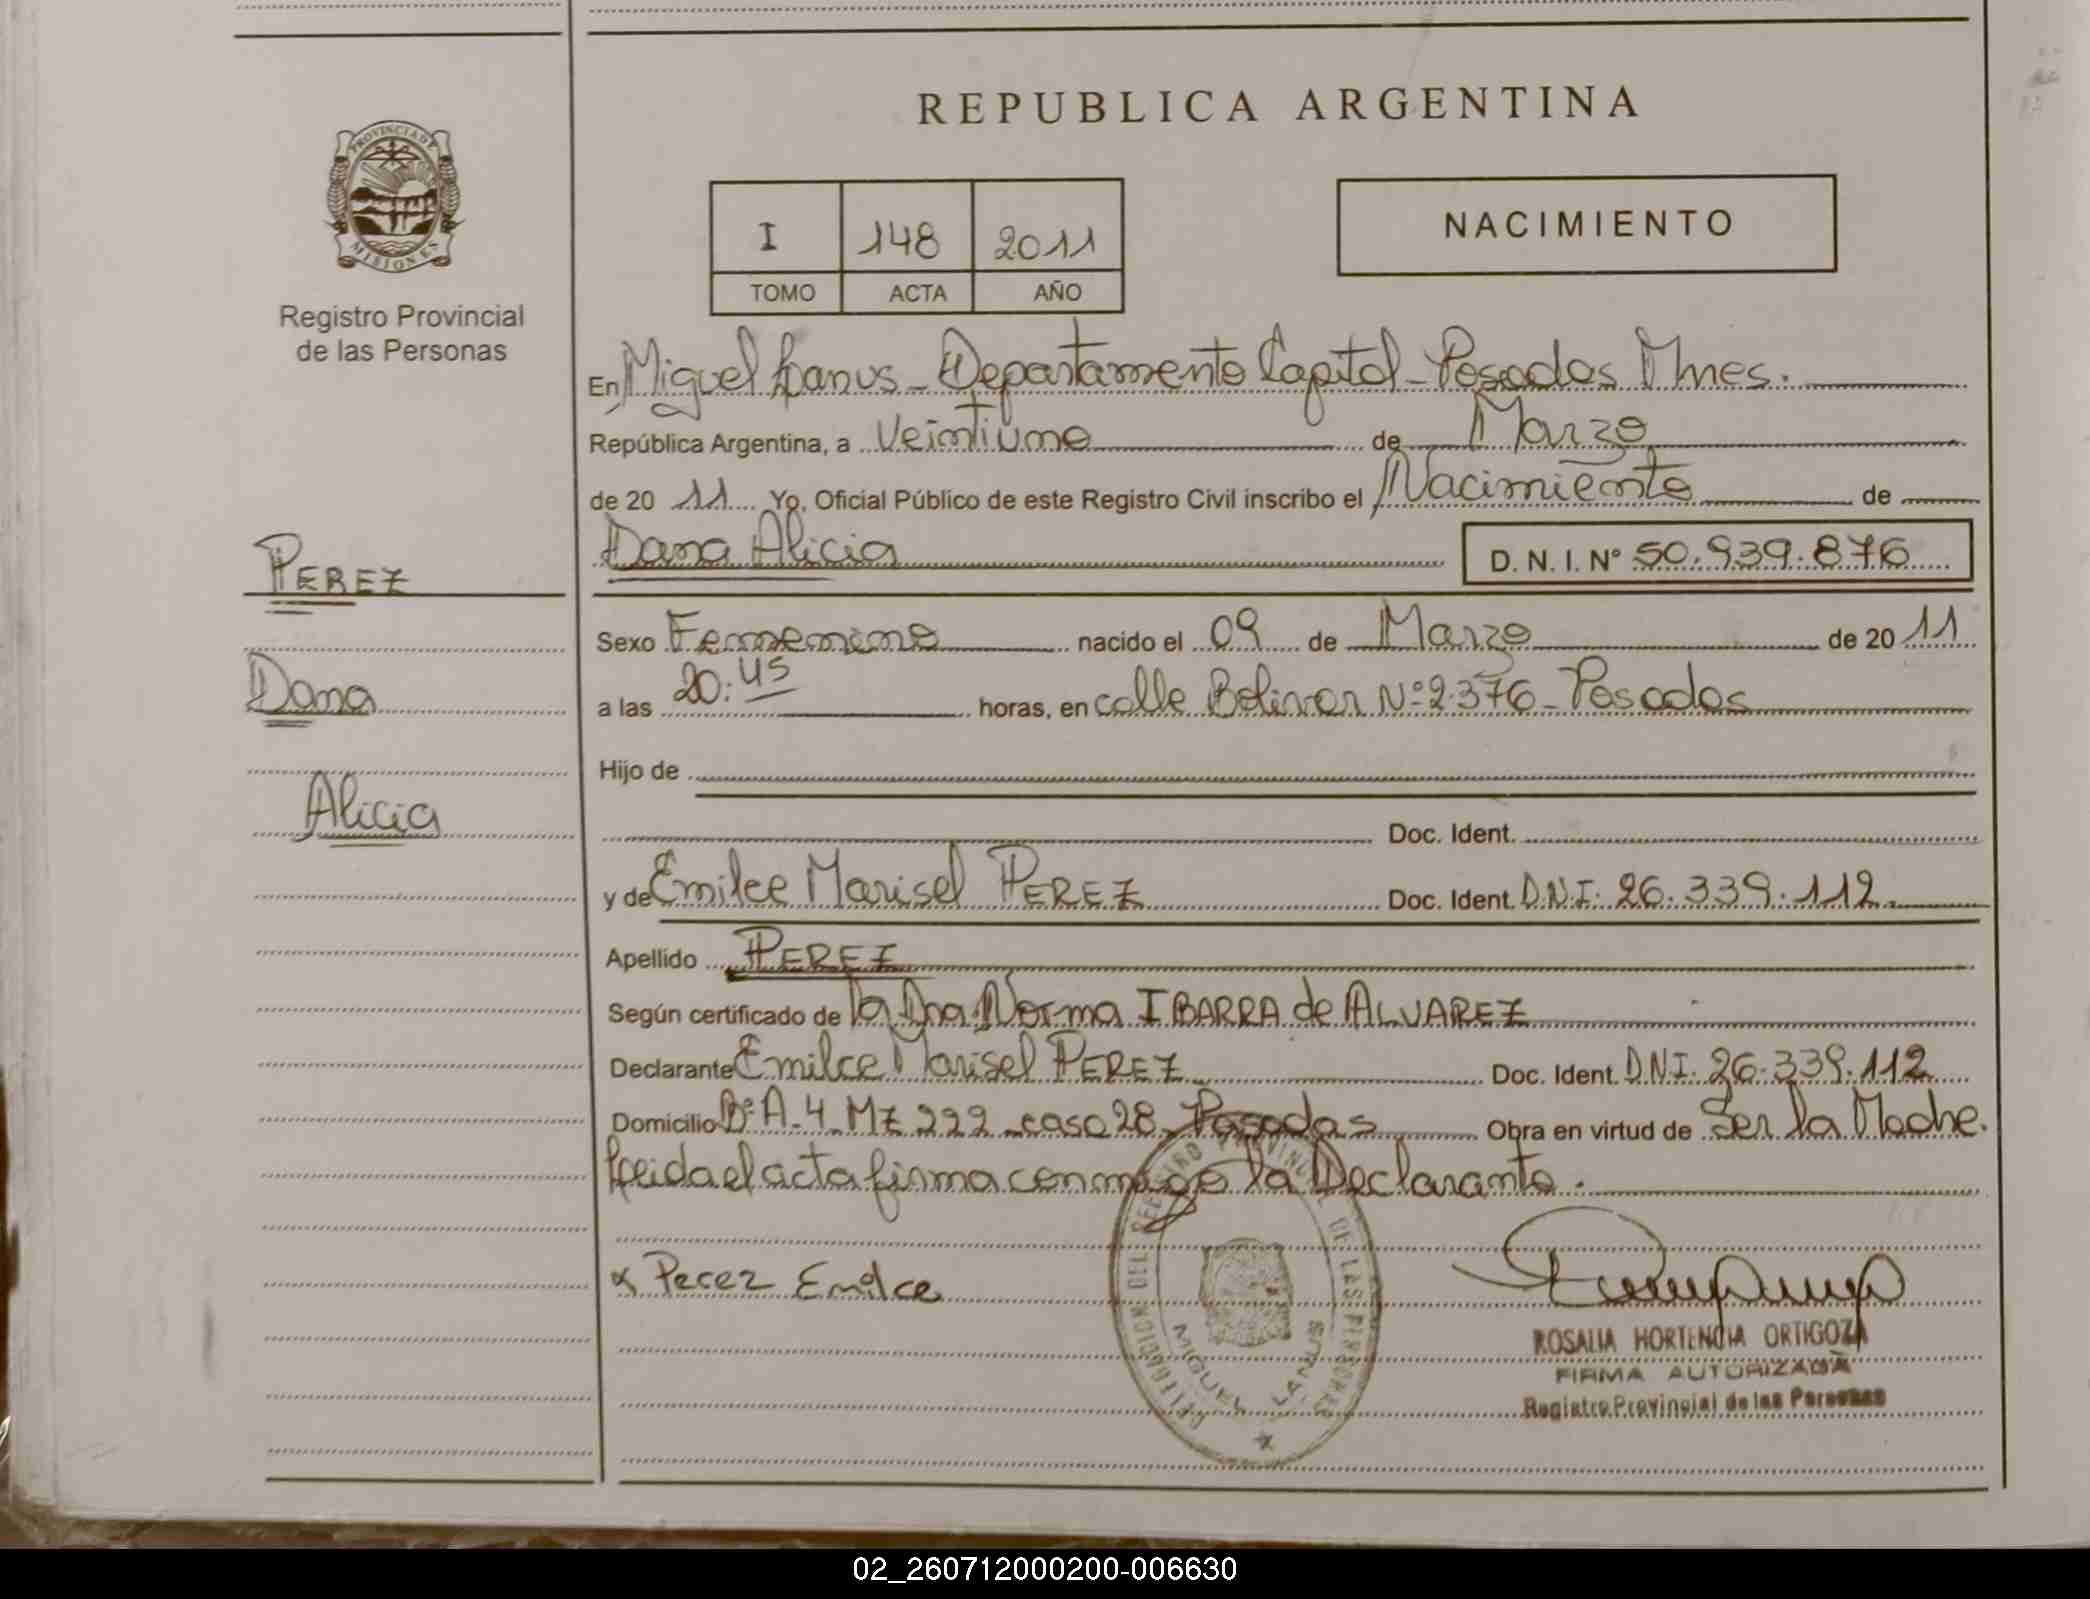 REPUBLICA ARGENTINA
PROVINCIA DE
MISIONES
Registro Provincial
de las Personas
I 148 2011
TOMO ACTA AÑO
NACIMIENTO
En Miguel Lanus - Departamento Capital - Posadas Mnes.
República Argentina, a Veintiuno de Marzo
de 20 11 Yo, Oficial Público de este Registro Civil inscribo el Nacimiento de
Dana Alicia D. N. I. N° 50.939.876
PEREZ
Dana
Alicia
Sexo Femenino nacido el 09 de Marzo de 20 11
a las 20:45 horas, en calle Bolivar N° 2.376 - Posadas
Hijo de
Doc. Ident.
y de Emilce Marisel PEREZ Doc. Ident. D.N.I. 26.339.112.
Apellido PEREZ
Según certificado de la Dra Norma IBARRA de ALVAREZ
Declarante Emilce Marisel PEREZ Doc. Ident. D.N.I. 26.339.112
Domicilio B° A-4 Mz 222 casa 28 - Posadas Obra en virtud de Ser la Madre.
Leida el acta firma conmigo la Declarante.
x Perez Emilce
DELEGACION DEL REGISTRO PROVINCIAL DE LAS PERSONAS
MIGUEL LANUS
ROSALIA HORTENCIA ORTIGOZA
FIRMA AUTORIZADA
Registro Provincial de las Personas
02_260712000200-006630